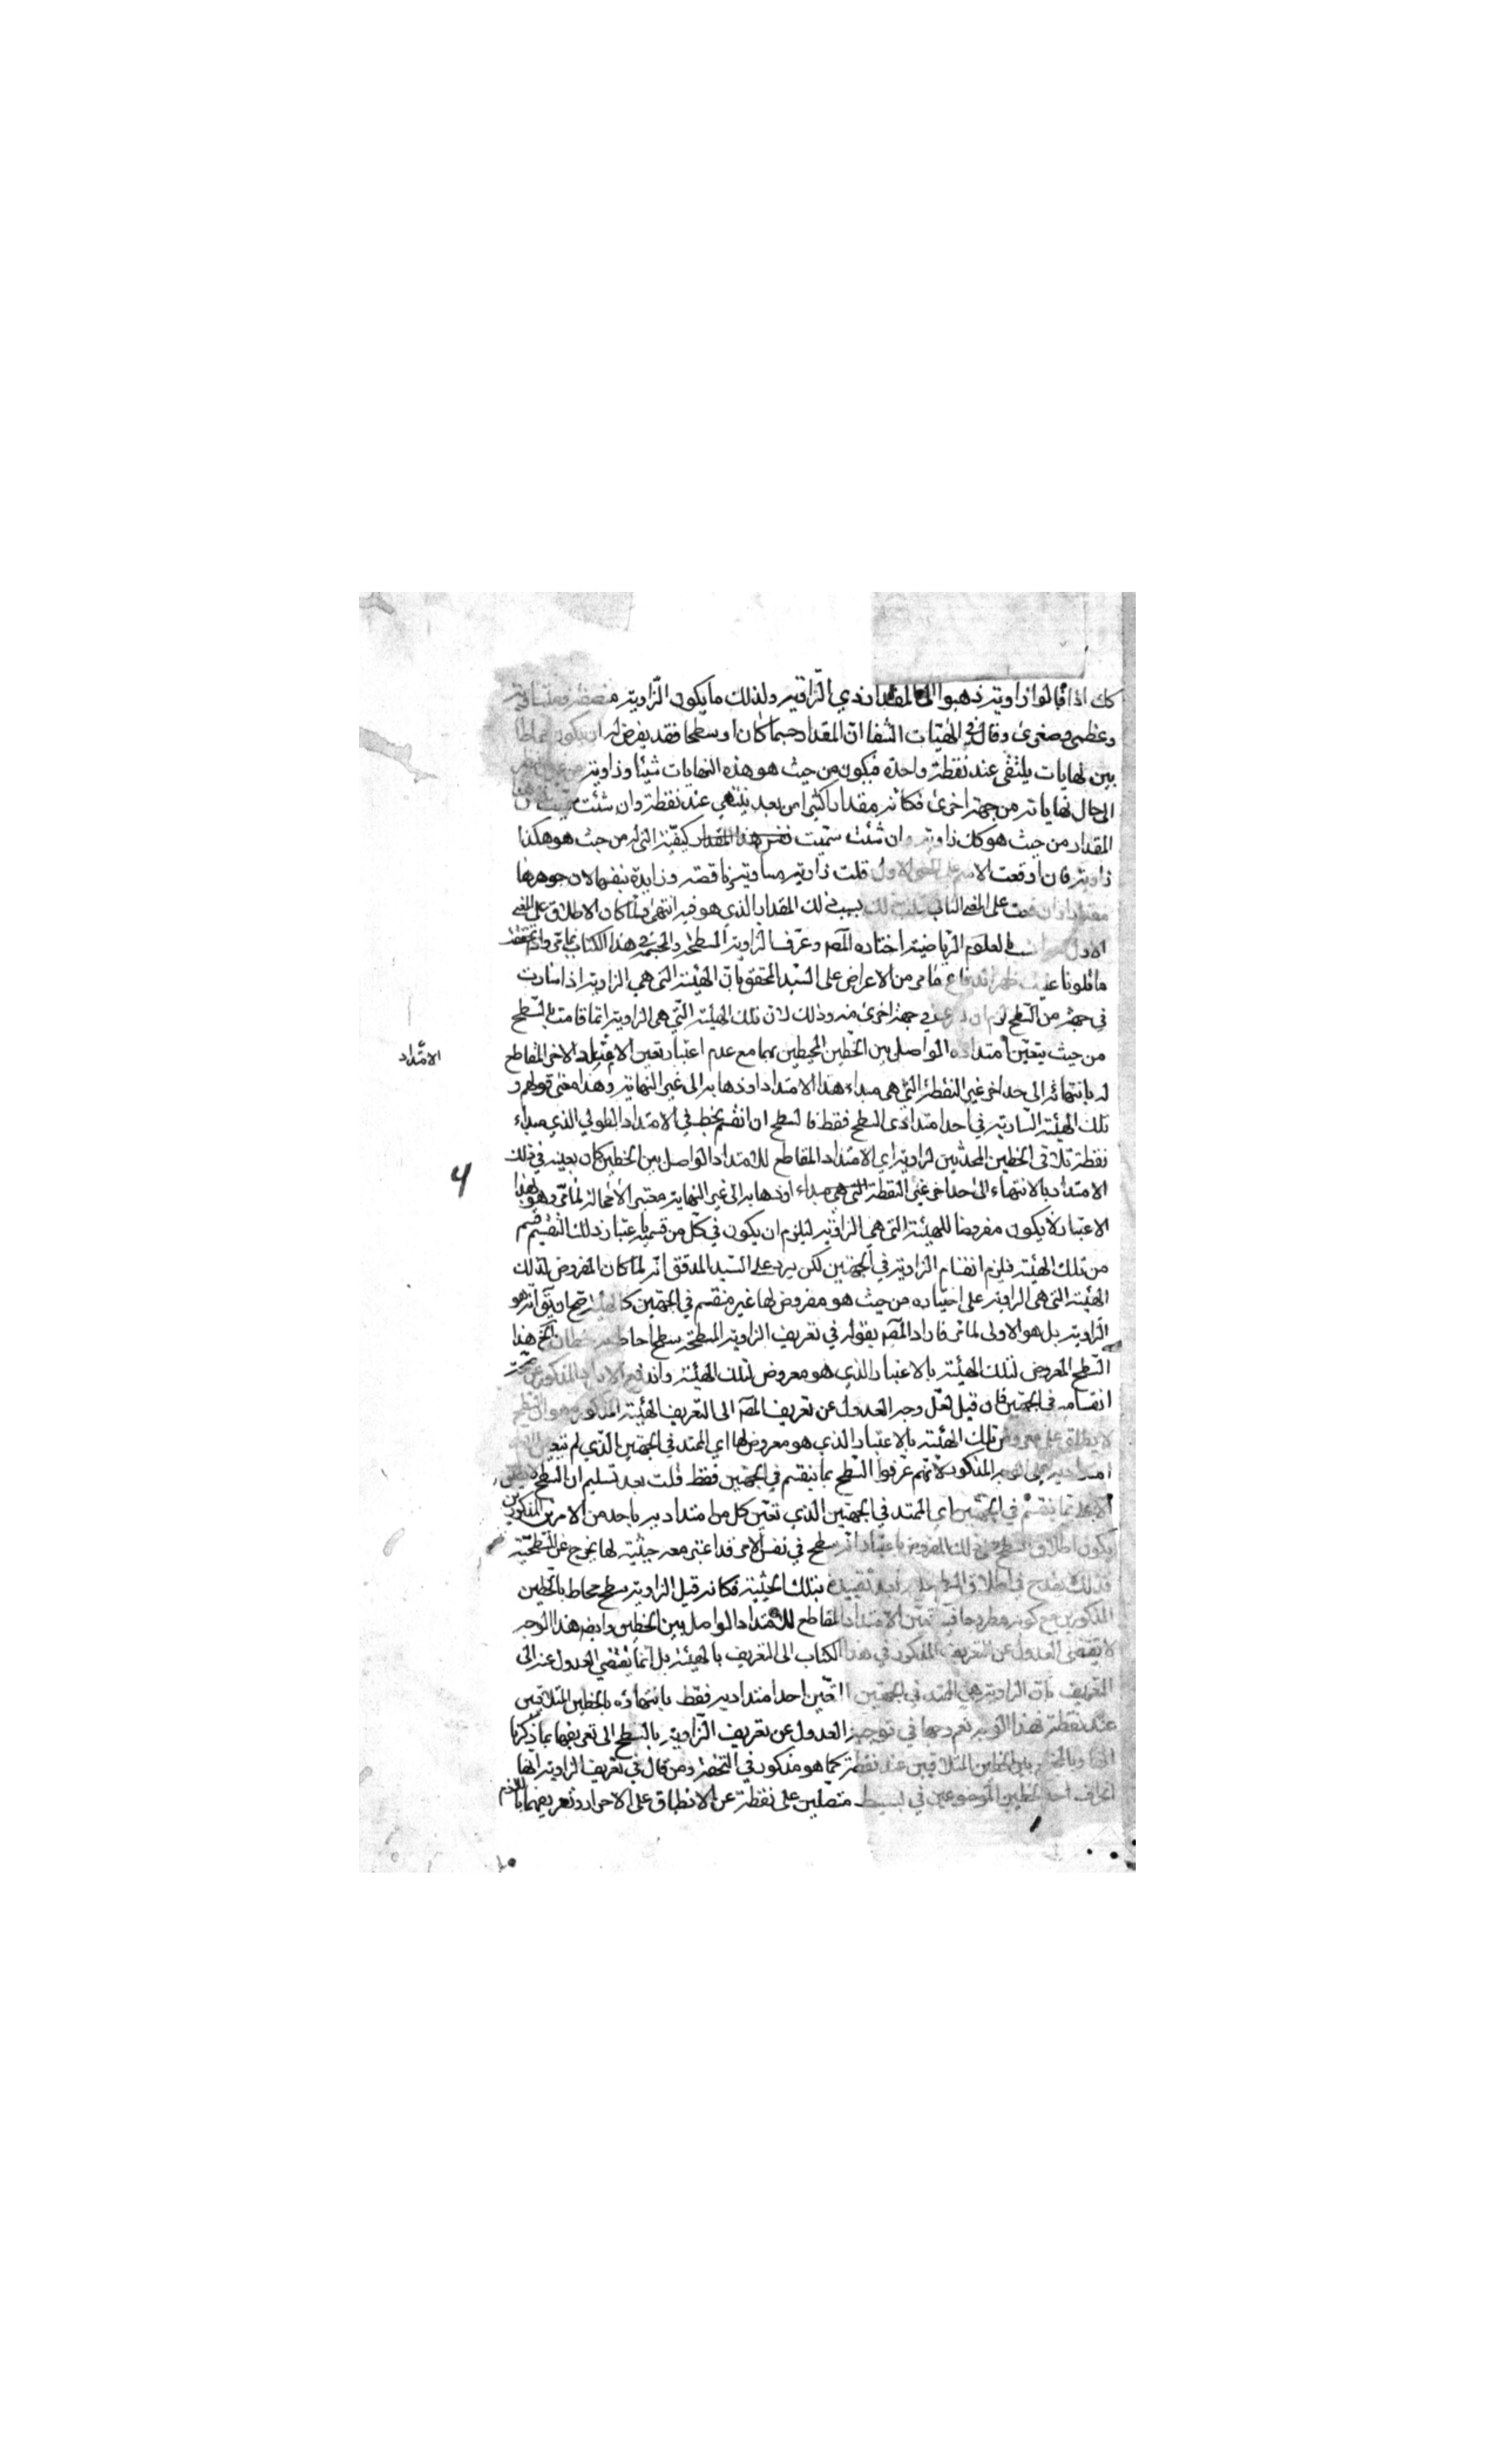 كك اذا قالوا زاوية ذهبوا الى المقدار ذي الزاوية ولذلك ما يكون الزاوية منصفة ومتساوية
وعظمى وصغرى وقال في الهيات الشفا ان المقدار جسما كان او سطحا فقد يفرض له ان يكون محاطا
بين نهايات يلتقى عند نقطة واحدة فيكون من حيث هو هذه النهايات شيئا وزاوية من غير ان ينظر
الى حال نهاياته من جهة اخرى فكانه مقدار اكثر من بعد ينتهي عند نقطة وان شئت سميت هذا
المقدار من حيث هو كك زاوية وان شئت سميت كيفيته التي له من حيث هو هكذا
زاوية فان اوقعت الاسم على المعنى الاول قلت زاوية مساوية وناقصة وزايدة بنفسها لان جوهرها
مقدار وان وقعت على المعنى الثاني قلت ذلك بسبب ذلك المقدار الذي هو فيه انتهى ولما كان الاطلاق على المعنى
الاول بالعلوم الرياضية اختاره المصـ وعرف الزاوية المسطحة والمجسمة في هذا الكتاب بما مر واذ تحققت
ما تلونا عليك ظهر اندفاع ما مر من الاعراض على السيد المحقق بان الهيئة التي هي الزاوية اذا سارت
في جهة من السطح لزم ان في جهة اخرى منه وذلك لان تلك الهيئة التي هي الزاوية انما قامت بالسطح
من حيث يتعين امتداده المواصل بين الخطين المحيطين بهما مع عدم اعتبار تعين الاخر المقاطع
الامتداد
له بانتهائه الى حد اخر غير النقطة التي هي مبداء هذا الامتداد او ذهابه الى غير النهاية وهذا معنى قولهم و
تلك الهيئة السارية في احد امتدادى السطح فقط فالسطح ان انقسم بخط في الامتداد الطولي الذي مبداء
نقطة تلاقى الخطين المحدثين لزاوية اي الامتداد المقاطع للامتداد الواصل بين الخطين كان بعينه في ذلك
4
الامتداد بالانتهاء الى حد اخر غير النقطة التي هي مبداء او ذهابه الى غير النهاية معتبر الا محالة لما مر وهو بهذا
الاعتبار لا يكون مفروضا للهيئة التي هي الزاوية ليلزم ان يكون في كل من قسميه باعتبار ذلك التقسيم قسم
من تلك الهيئة فيلزم انقسام الزاوية في الجهتين لكن يرد على السيد المدقق انه لما كان المفروض لتلك
الهيئة التي هي الزاوية على اختياره من حيث هو مفروض لها غير منقسم في الجهتين كالهيئة صح ان يق انه هو
الزاوية بل هو الاولى لما مر فاراد المصـ بقوله في تعريف الزاوية المسطحة سطح احاط به خطان الخ هذا
السطح المعروض لتلك الهيئة بالاعتبار الذي هو معروض لتلك الهيئة واندفع الايراد المذكور من جهة
انقسامه في الجهتين فان قيل لعل وجه العدول عن تعريف المصـ الى التعريف الهيئة المذكور هو ان السطح
لا يطلق على معروض تلك الهيئة بالاعتبار الذي هو معروض لها اي الممتد في الجهتين الذي لم يتعين
امتداديه على الوجه المذكور لانهم عرفوا السطح بما ينقسم في الجهتين فقط قلت بعد تسليم ان السطح لا يطلق
الا على ما ينقسم في الجهتين اي الممتد في الجهتين الذي تعين كل من امتداديه باحد من الامرين المذكورين
يكون اطلاق السطح على ذلك المعروض باعتبار انه سطح في نفس الامر قد اعتبر معه حيثية لها يخرج عن السطحية
فذلك يقدح في اطلاق السطح عليه بعد تقييده بتلك الحيثية فكانه قيل الزاوية سطح محاط بالخطين
المذكورين مع كونه مطروحا فيه تعين الامتداد المقاطع للامتداد الواصل بين الخطين وايضا هذا الوجه
لا يقتضى العدول عن التعريف المذكور في هذا الكتاب الى التعريف بالهيئة بل انما يقتضي العدول عنه الى
التعريف بان الزاوية هي الممتد في الجهتين تعين احد امتداديه فقط بانتهائه بالخطين المتلاقيين
عند نقطة فهذا الوجه في توجيه العدول عن تعريف الزاوية بالسطح الى تعريفها بما ذكرنا
بين الخطين المتلاقيين عند نقطة كما هو مذكور في التحفة ومن قال في تعريف الزاوية انها
انحراف احد الخطين الموضوعين في بسيط متصلين على نقطة عن الانطباق على الاخر اراد تعريفهما باللازم